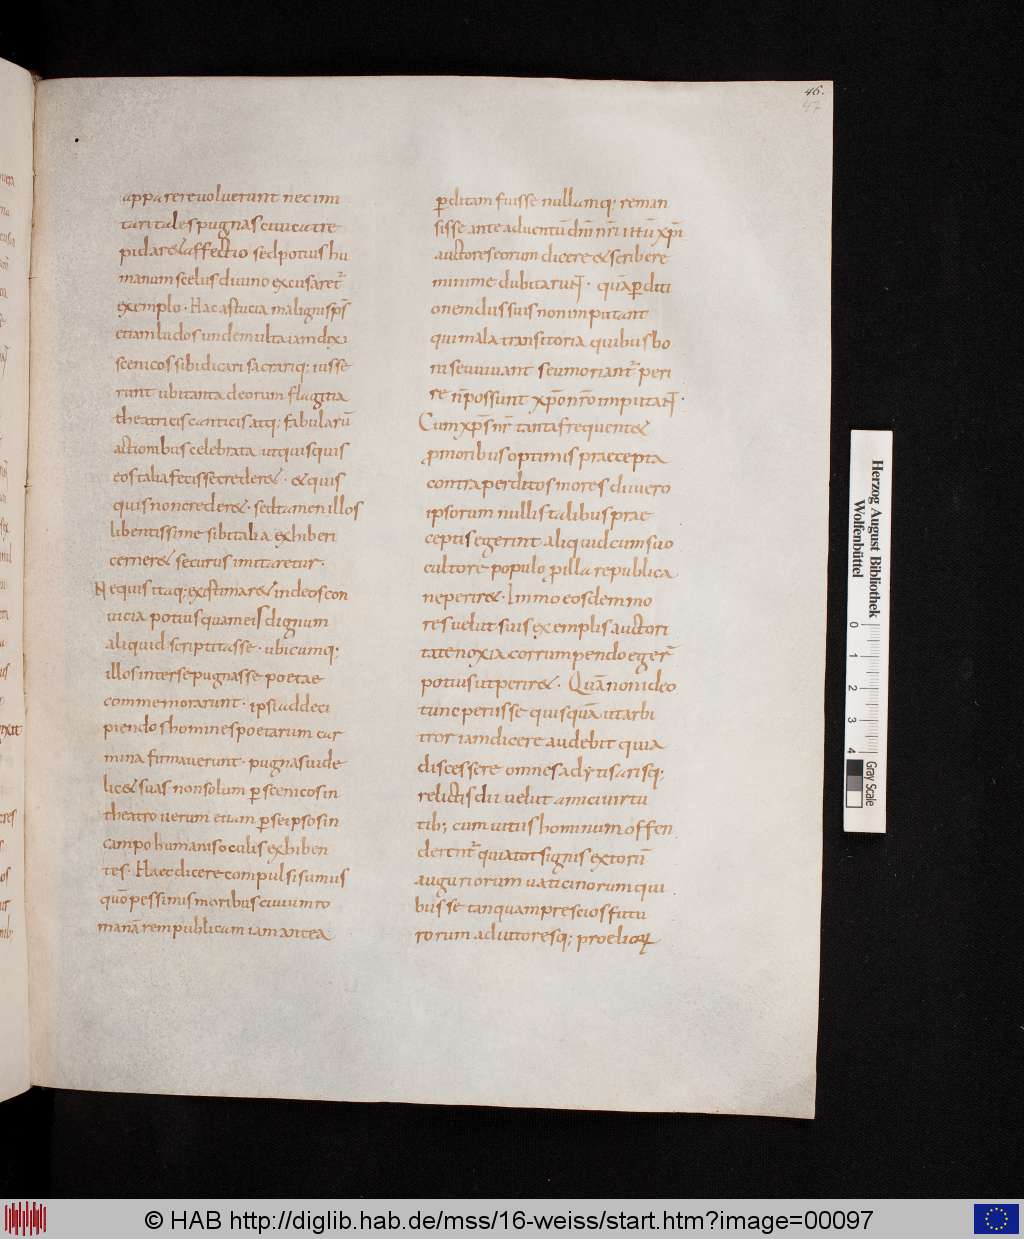 46.
47
apparere voluerunt nec imi
tari tales pugnas civica tre
pidar& affectio sed potius hu
manum scelus divino excusaret᷒
exemplo. Hac astucia maligni sp̄s
etiam ludos unde multa iam dixi
scenicos sibi dicari sacrariq; iusse
runt ubi tanta deorum flagitia
theatricis canticis atq; fabularū
actionibus celebrata ut quisquis
eos talia fecisse creder&. & quis
quis non creder&. sed tamen illos
libentissime sibi talia exhiberi
cerner& securus imitaretur.
Nequis itaq; existimar& in deos con
vicia potius quam eis dignum
aliquid scriptitasse. ubicumq;
illos inter se pugnasse poetae
commemorarunt. ipsi ad deci
piendos homines poetarum car
mina firmaverunt. pugnas vide
lic& suas non solum ꝑ scenicos in
theatro verum etiam ꝑ se ipsos in
campo humanis oculis exhiben
tes. Haec dicere compulsi sumus
quō pessimis moribus civium ro
manā rem publicam iam antea
ꝑditam fuisse nullamq; reman
sisse ante adventū dn̄i nr̄i ihū xp̄i
auctores eorum dicere & scribere
minime dubitarunt. quā ꝑditi
onem diis suis non imputant
qui mala transitoria quibus bo
ni seu vivant seu moriant᷒ peri
re n̄ possunt xp̄o nr̄o imputant.
Cum xp̄s nr̄ tanta frequent&
ꝓ moribus optimis praecepta
contra perditos mores dii vero
ipsorum nullis talibus prae
ceptis egerint aliquid cum suo
cultore populo ꝓ illa republica
ne perir&. Immo eosdem mo
res velut suis exemplis auctori
tate noxia corrumpendo eger̄
potius ut perir&. Quā non ideo
tunc perisse quisquā ut arbi
tror iam dicere audebit quia
discessere omnes adytis arisq;
relictis dii velut amici virtu
tib; cum vitiis hominum offen
derent᷒ quia tot signis extorū
auguriorum vaticinorum qui
bus se tanquam prescios futu
rorum adiutoresq; proeliorꝝ
Herzog August Bibliothek
Wolfenbüttel
0 1 2 3 4
Gray Scale
© HAB http://diglib.hab.de/mss/16-weiss/start.htm?image=00097